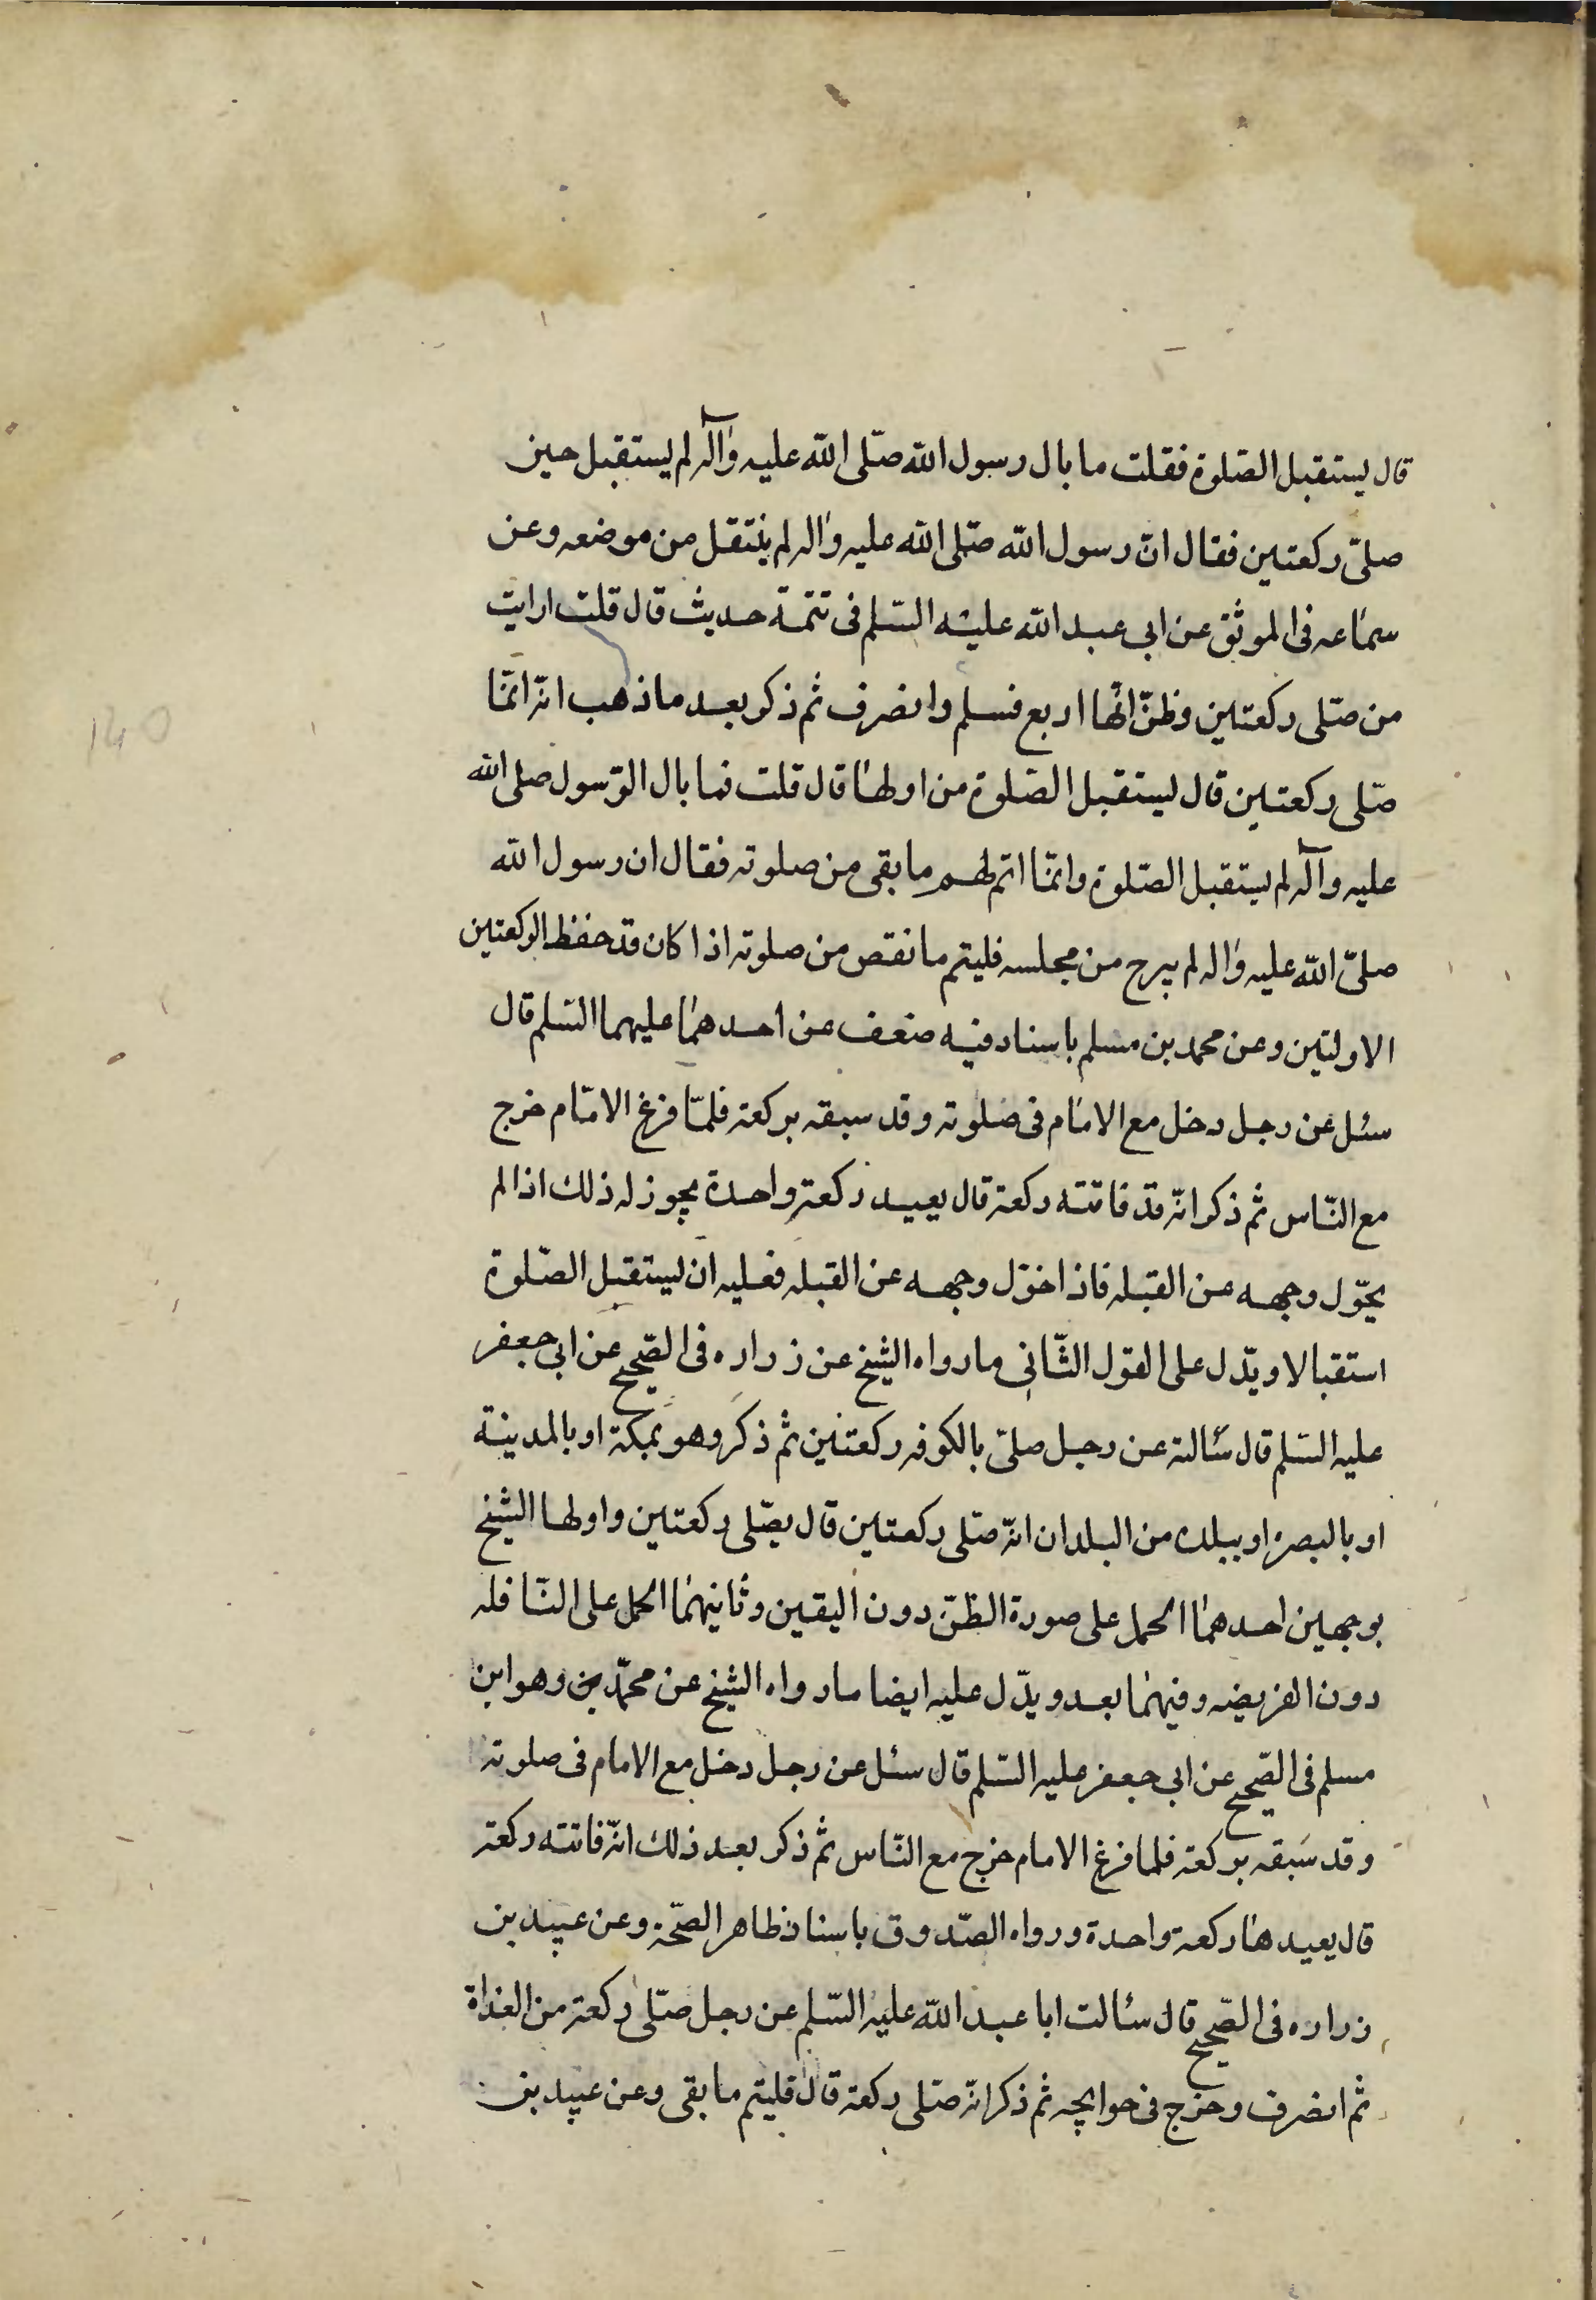 قال يستقبل الصّلوة فقلت ما بال رسول الله صلّى الله عليه وآله لم يستقبل حين
صلّى ركعتين فقال انّ رسول الله صلّى الله عليه واله لم ينتقل من موضعه وعن
سماعه فى الموثق عن ابى عبد الله عليه السّلم فى تتمة حديث قال قلت ارايت
من صلّى ركعتين وظنّ انّها اربع فسلم وانصرف ثم ذكر بعد ما ذهب انّه انّما
صلّى ركعتين قال يستقبل الصّلوة من اولها قال قلت فما بال الرّسول صلى الله
عليه وآله لم يستقبل الصّلوة وانّما اتم لهم ما بقى من صلوته فقال ان رسول الله
صلّى الله عليه واله لم يبرح من مجلسه فليتم ما نقص من صلوته اذا كان قد حفظ الركعتين
الاولتين وعن محمد بن مسلم باسناد فيه ضعف عن احدهما عليهما السّلم قال
سئل عن رجل دخل مع الامام فى صلوته وقد سبقه بركعة فلمّا فرغ الامام خرج
مع النّاس ثم ذكر انّه قد فاتته ركعة قال يعيد ركعة واحدة يجوز له ذلك اذا لم
يحوّل وجهه عن القبله فاذا حوّل وجهه عن القبله فعليه ان يستقبل الصّلوة
استقبالا ويدّل على القول الثّانى ما رواه الشيخ عن زراره فى الصّحيح عن ابى جعفر
عليه السّلم قال سئالته عن رجل صلّى بالكوفه ركعتين ثم ذكر وهو بمكة او بالمدينة
او بالبصرة او ببلده من البلدان انّه صلّى ركعتين قال يصّلى ركعتين واولها الشيخ
بوجهين احدهما الحمل على صورة الظنّ دون اليقين وثانيهما الحمل على النّافله
دون الفريضه وفيهما بعد ويدّل عليه ايضا ما رواه الشيخ عن محمّد بن وهو ابن
مسلم فى الصّحيح عن ابى جعفر عليه السّلم قال سئل عن رجل دخل مع الامام فى صلوته
وقد سبقه بركعة فلما فرغ الامام خرج مع النّاس ثم ذكر بعد ذلك انّه فاتته ركعة
قال يعيدها ركعة واحدة ورواه الصّدوق باسناد ظاهر الصّحّة وعن عبيد بن
زراره فى الصّحيح قال سئالت ابا عبد الله عليه السّلم عن رجل صلّى ركعة من الغداة
ثم انصرف وخرج فى حوايجه ثم ذكر انّه صلّى ركعة قال فليتم ما بقى وعن عبيد بن